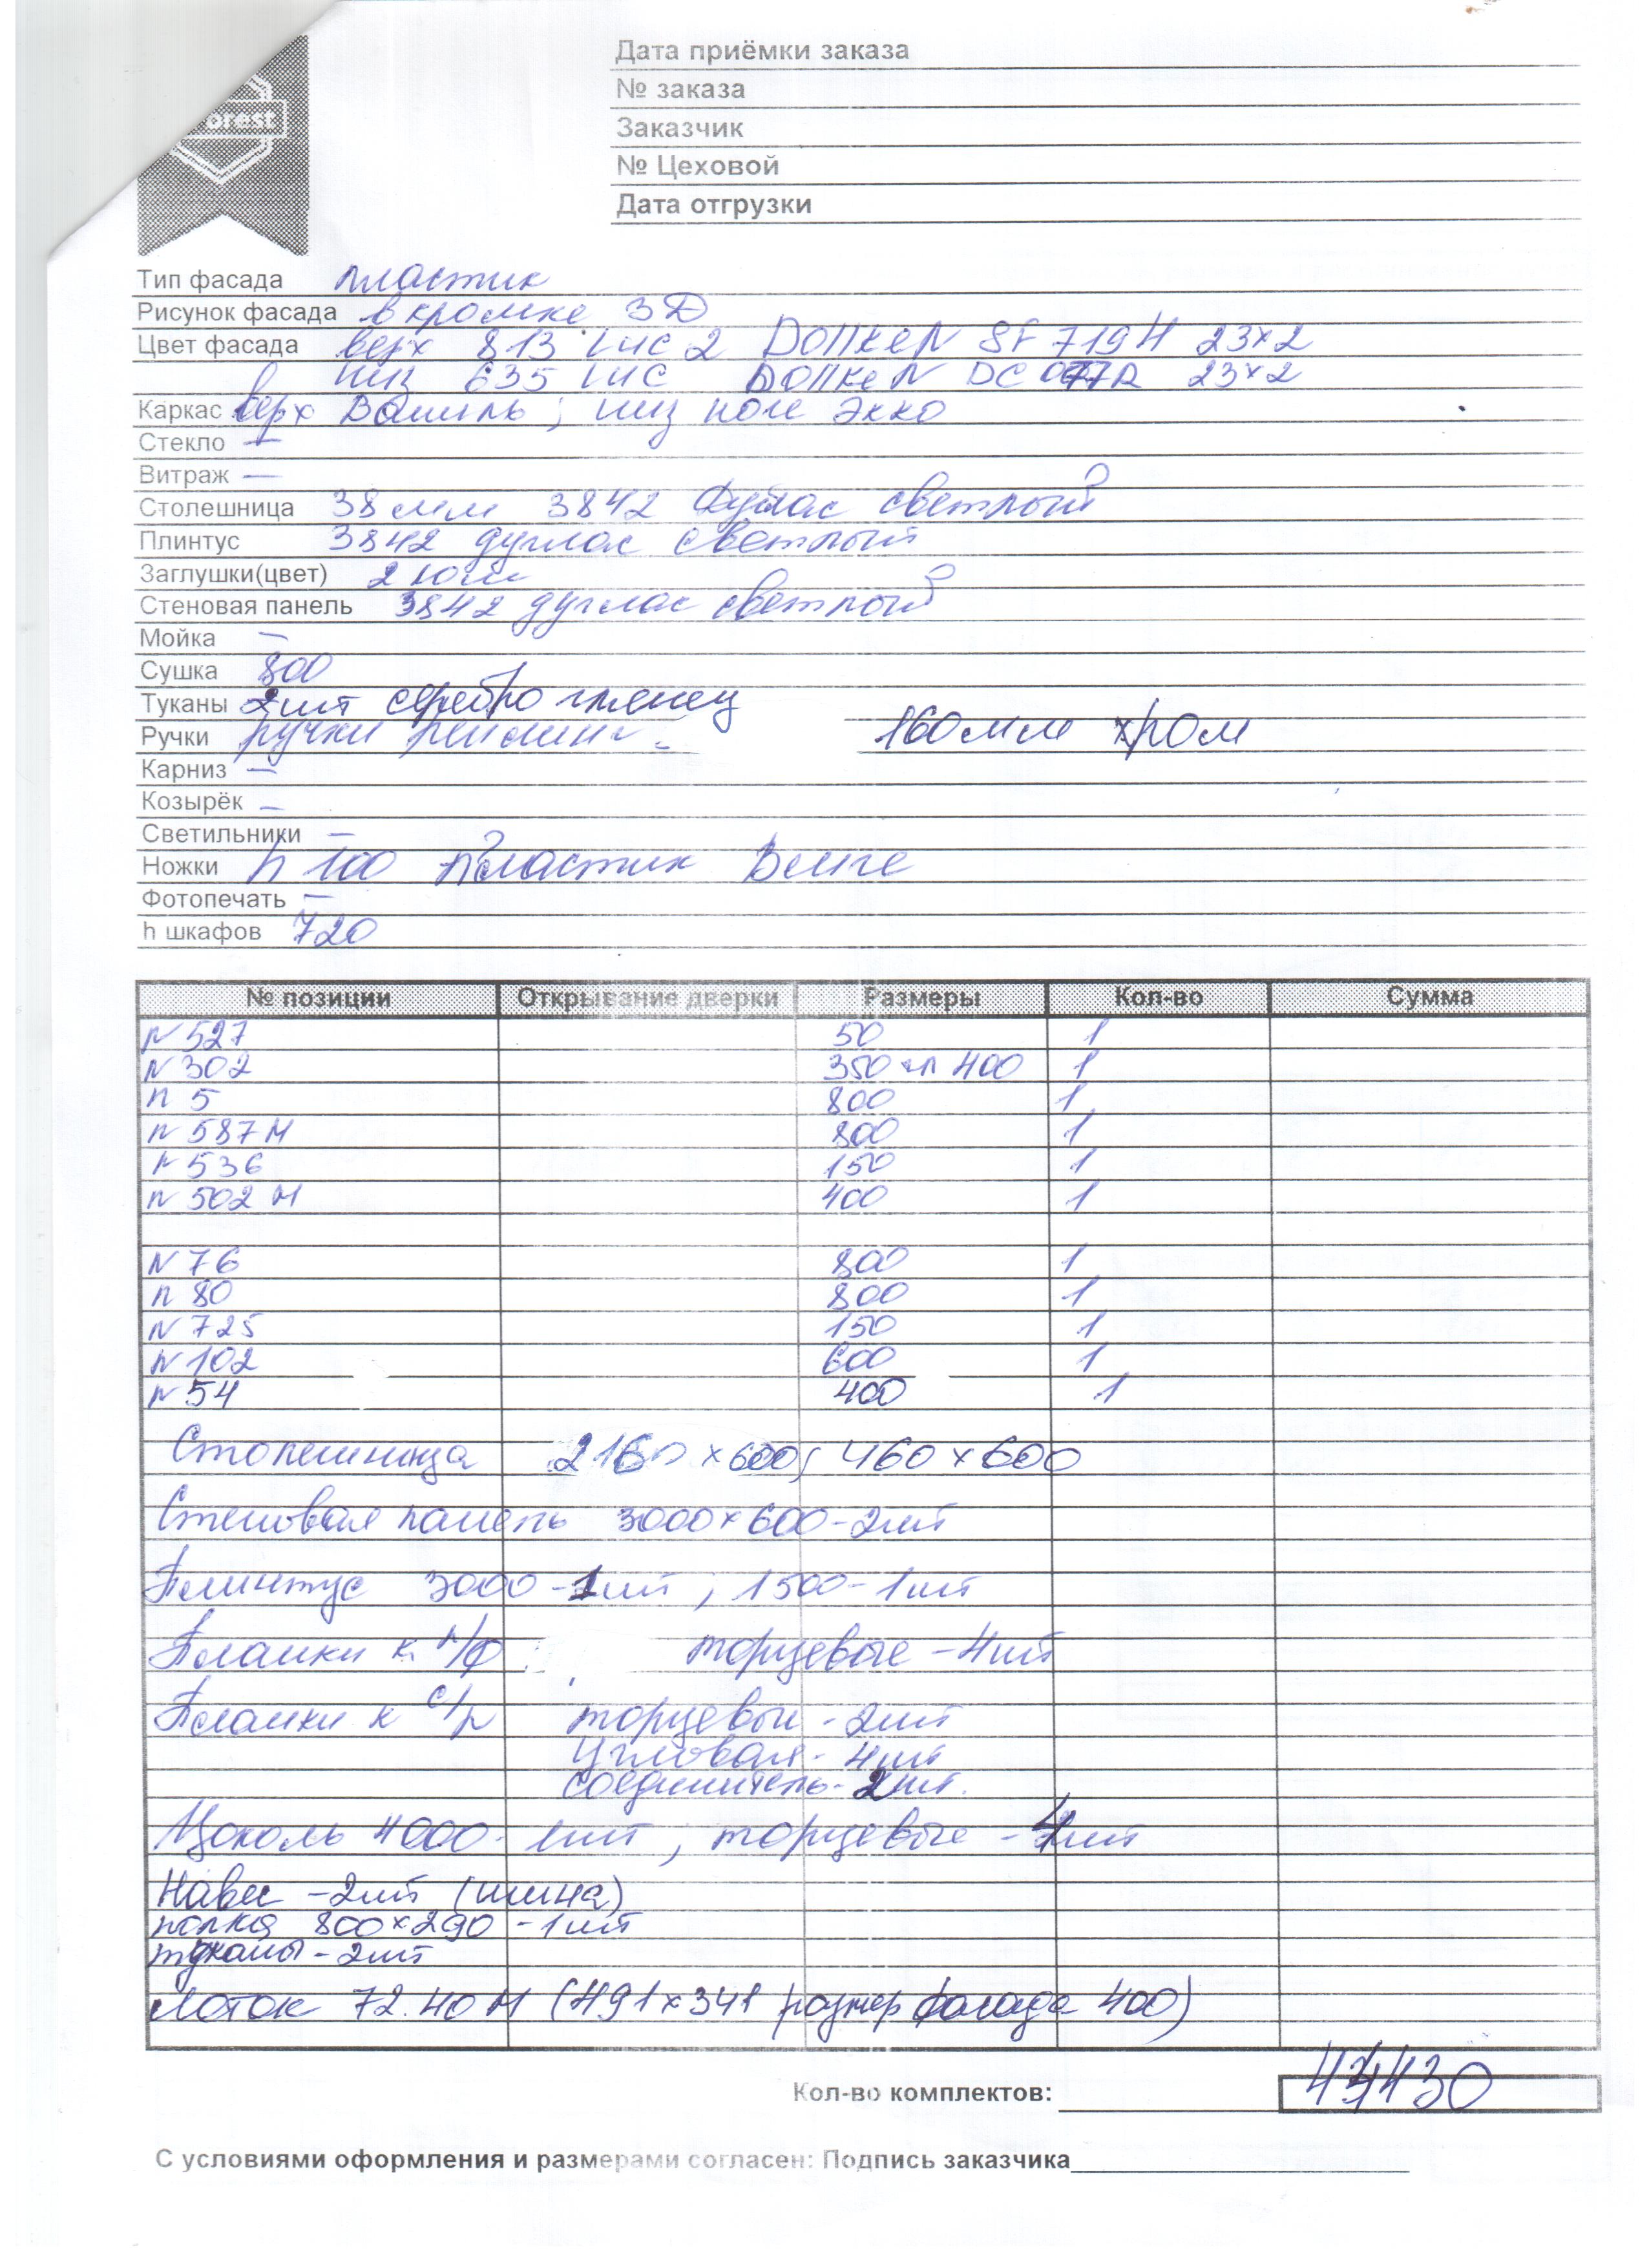 orest
Дата приёмки заказа
№ заказа
Заказчик
№ Цеховой
Дата отгрузки
Тип фасада пластик
Рисунок фасада в кромке 3Д
Цвет фасада верх 813 2 DOllKeN 8F 7194 23×2
низ 635 DOllKeN DC 23×2
Каркас верх Ваниль; низ ноче Экко
Стекло —
Витраж —
Столешница 38 мм 3842 Дуглас светлый
Плинтус 3842 дуглас светлый
Заглушки(цвет)
Стеновая панель 3842 дуглас светлый
Мойка —
Сушка 800
Туканы 2шт серебро глянец
Ручки ручки рейлинг 160мм хром
Карниз —
Козырёк —
Светильники —
Ножки h 100 пластик Венге
Фотопечать —
h шкафов 720
№ позиции Открывание дверки Размеры Кол-во Сумма
N 527 50 1
N 302 350 400 1
п 5 800 1
n 587 М 800 1
N 536 150 1
n 502 М 400 1
N 76 800 1
п 80 800 1
N 725 150 1
N 102 600 1
N 54 400 1
Столешница 2160×600; 460×600
Стеновая панель 3000×600-2шт
Плинтус 3000-1шт; 1500-1шт
Планки к п/ф торцевые -4шт
Планки к с/п торцевые -2шт
Угловая- 4шт
соединитель- 2шт.
Цоколь 4000- 1шт, торцевые -4шт
Навес -2шт (шина)
полка 800×290 -1шт
туканы -2шт
Лоток 72.40М (491×341 размер фасада 400)
Кол-во комплектов:
С условиями оформления и размерами согласен: Подпись заказчика